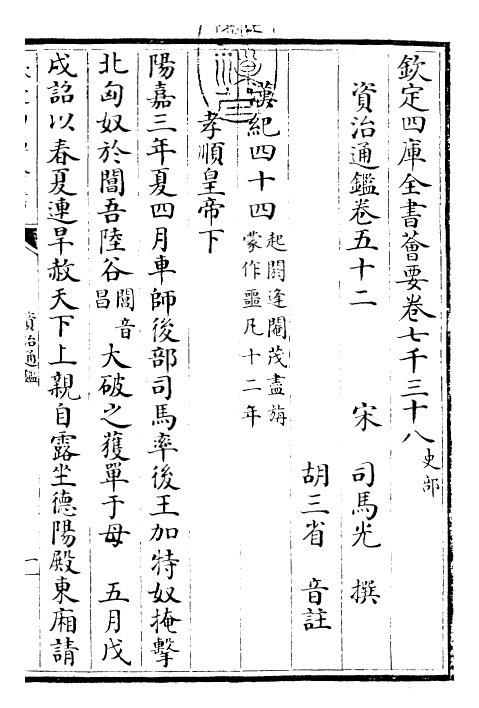 欽定四庫全書薈要卷七千三十八 史部
資治通鑑卷五十二 宋 司馬光 撰
胡三省 音註
漢紀四十四 起閼逢閹茂盡旃
蒙作噩凡十二年
孝順皇帝下
陽嘉三年夏四月車師後部司馬率後王加特奴掩擊
北匈奴於閶吾陸谷 閶音
昌 大破之獲單于母 五月戊
戌詔以春夏連旱赦天下上親自露坐德陽殿東廂請
資治通鑑
一